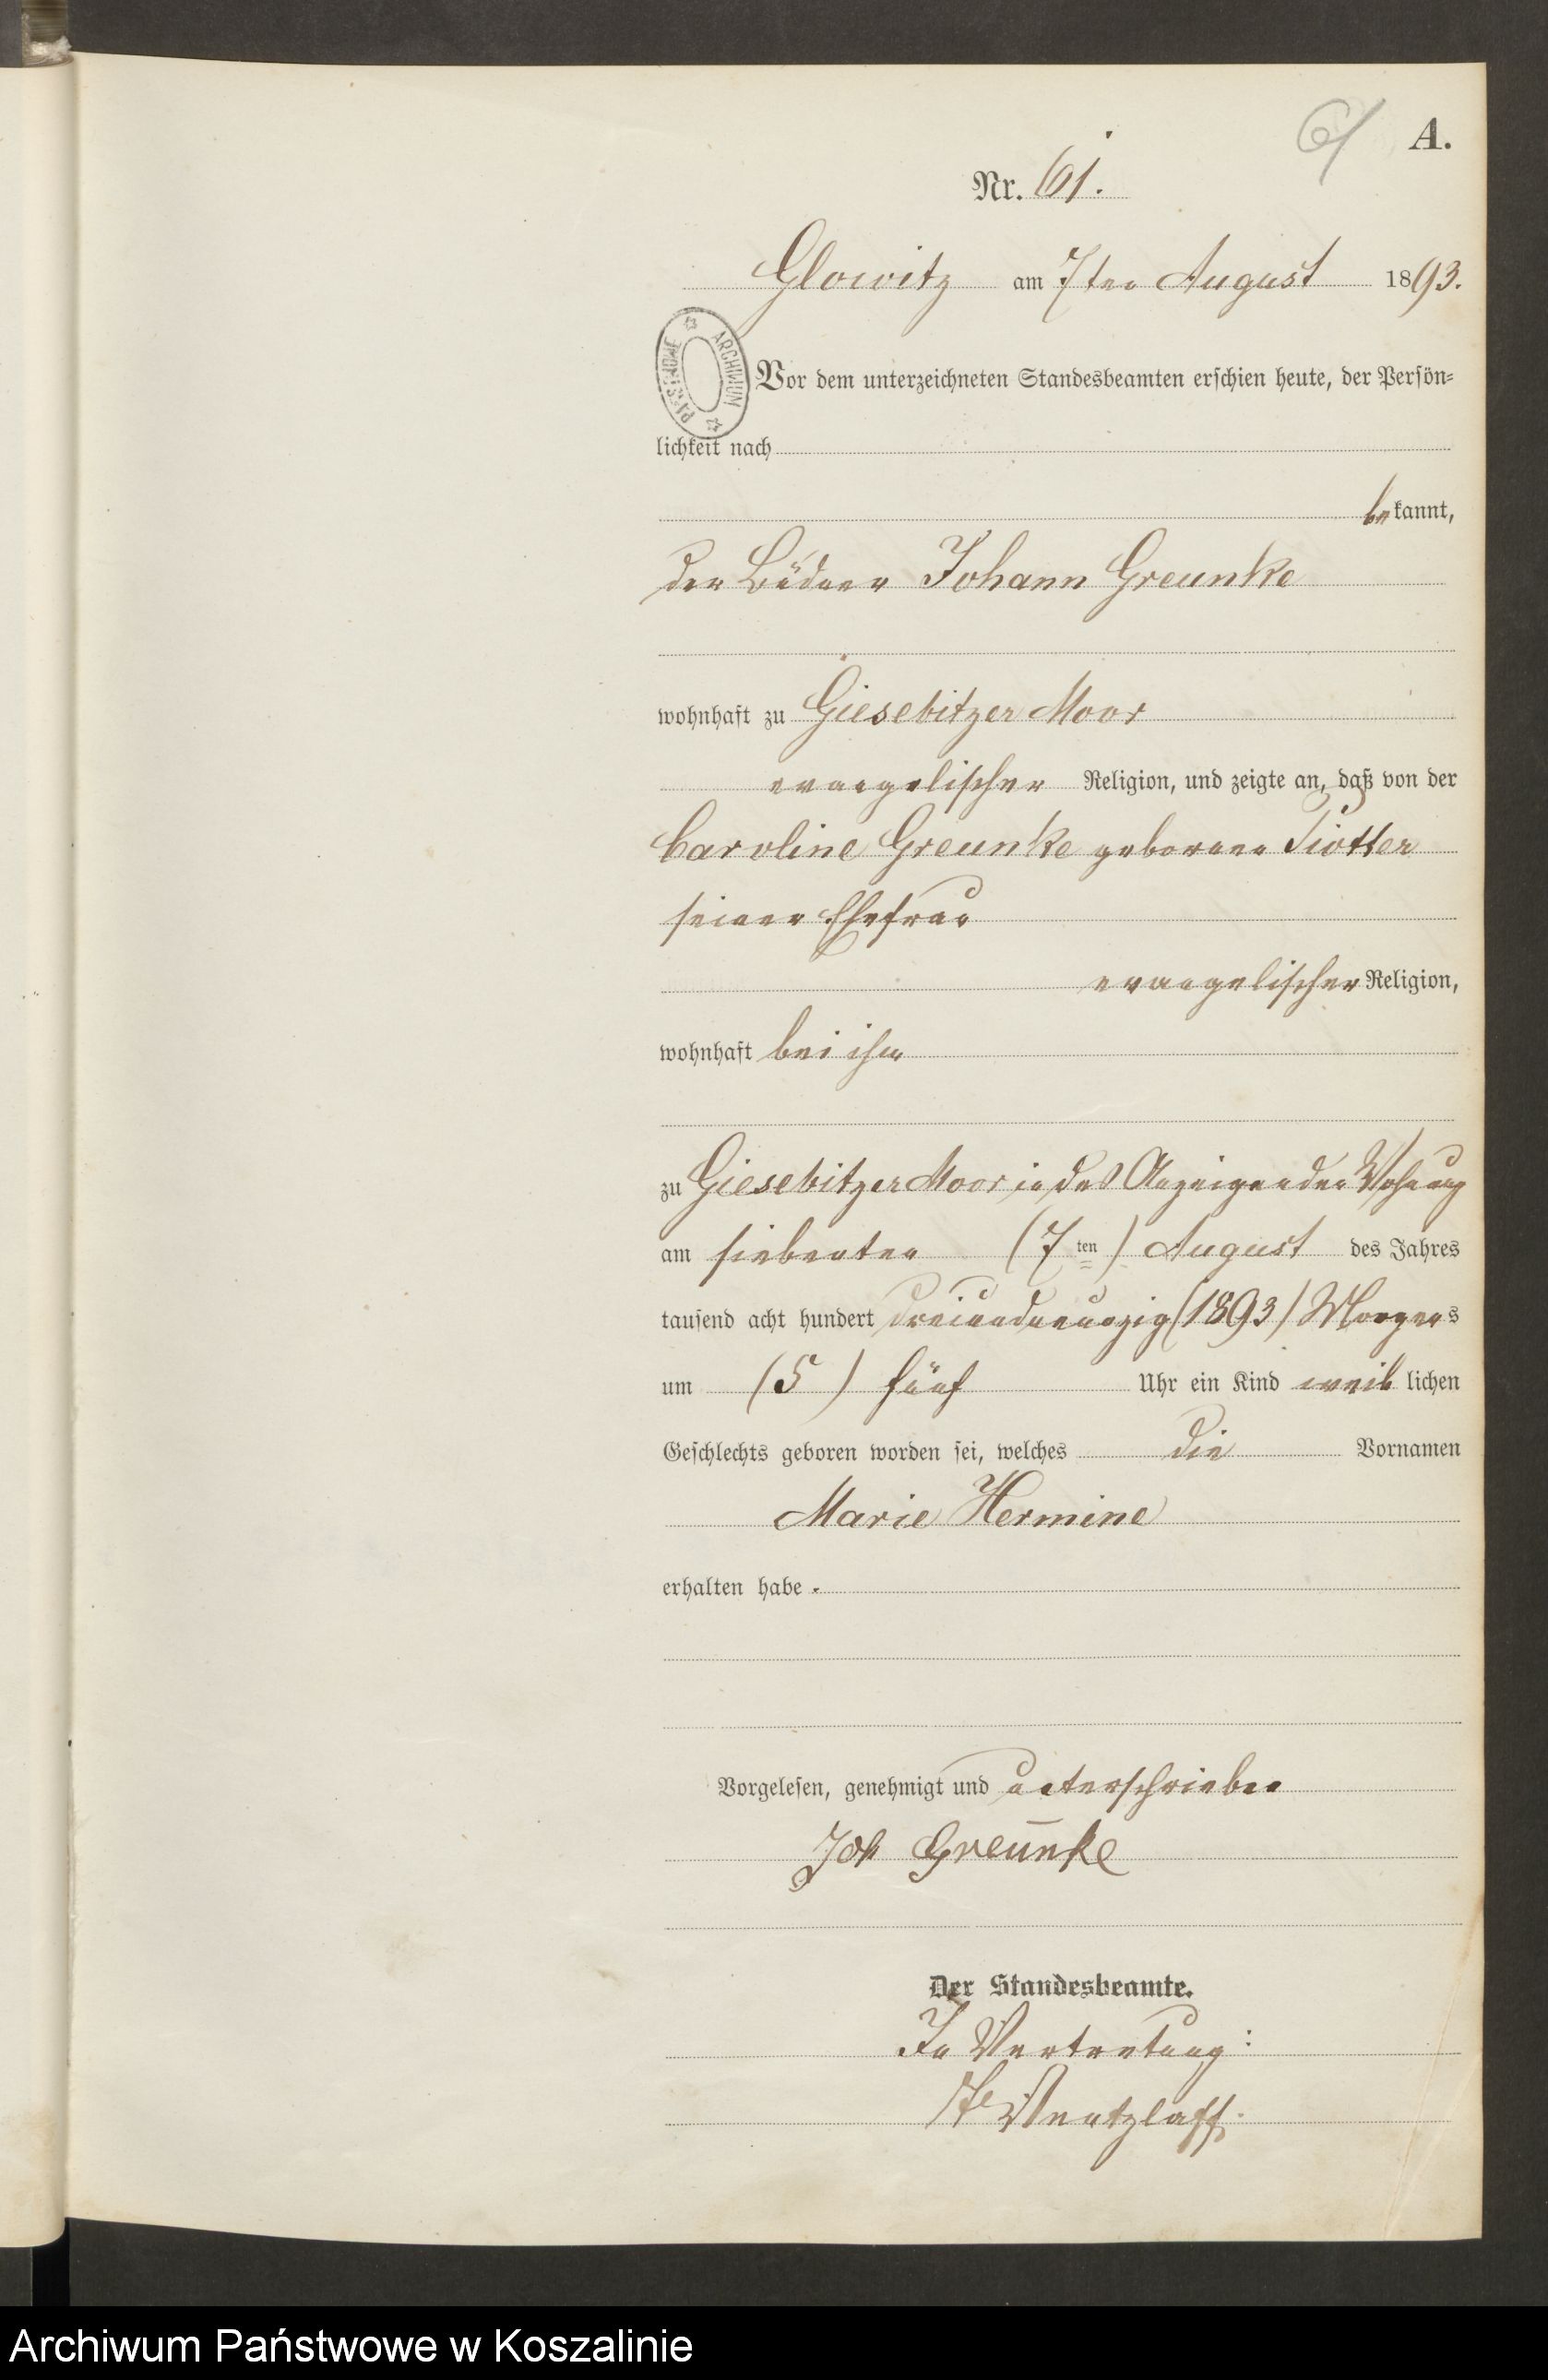 61 A.
Nr. 61.
Glowitz am 7ten August 1893.
ARCHIWUM PAŃSTWOWE
Vor dem unterzeichneten Standesbeamten erschien heute, der Persön-
lichkeit nach
bekannt,
der Büdner Johann Greunke
wohnhaft zu Giesebitzer Moor
evangelischer Religion, und zeigte an, daß von der
Caroline Greunke geborene
seiner Ehefrau
evangelischer Religion,
wohnhaft bei ihm
zu Giesebitzer Moor in des Anzeigenden Wohnung
am siebenten (7ten) August des Jahres
tausend acht hundert dreiundneunzig (1893) Morgens
um (5) fünf Uhr ein Kind weiblichen
Geschlechts geboren worden sei, welches die Vornamen
Marie Hermine
erhalten habe.
Vorgelesen, genehmigt und unterschrieben
Joh Greunke
Der Standesbeamte.
In Vertretung:
Wentzlaff.
Archiwum Państwowe w Koszalinie